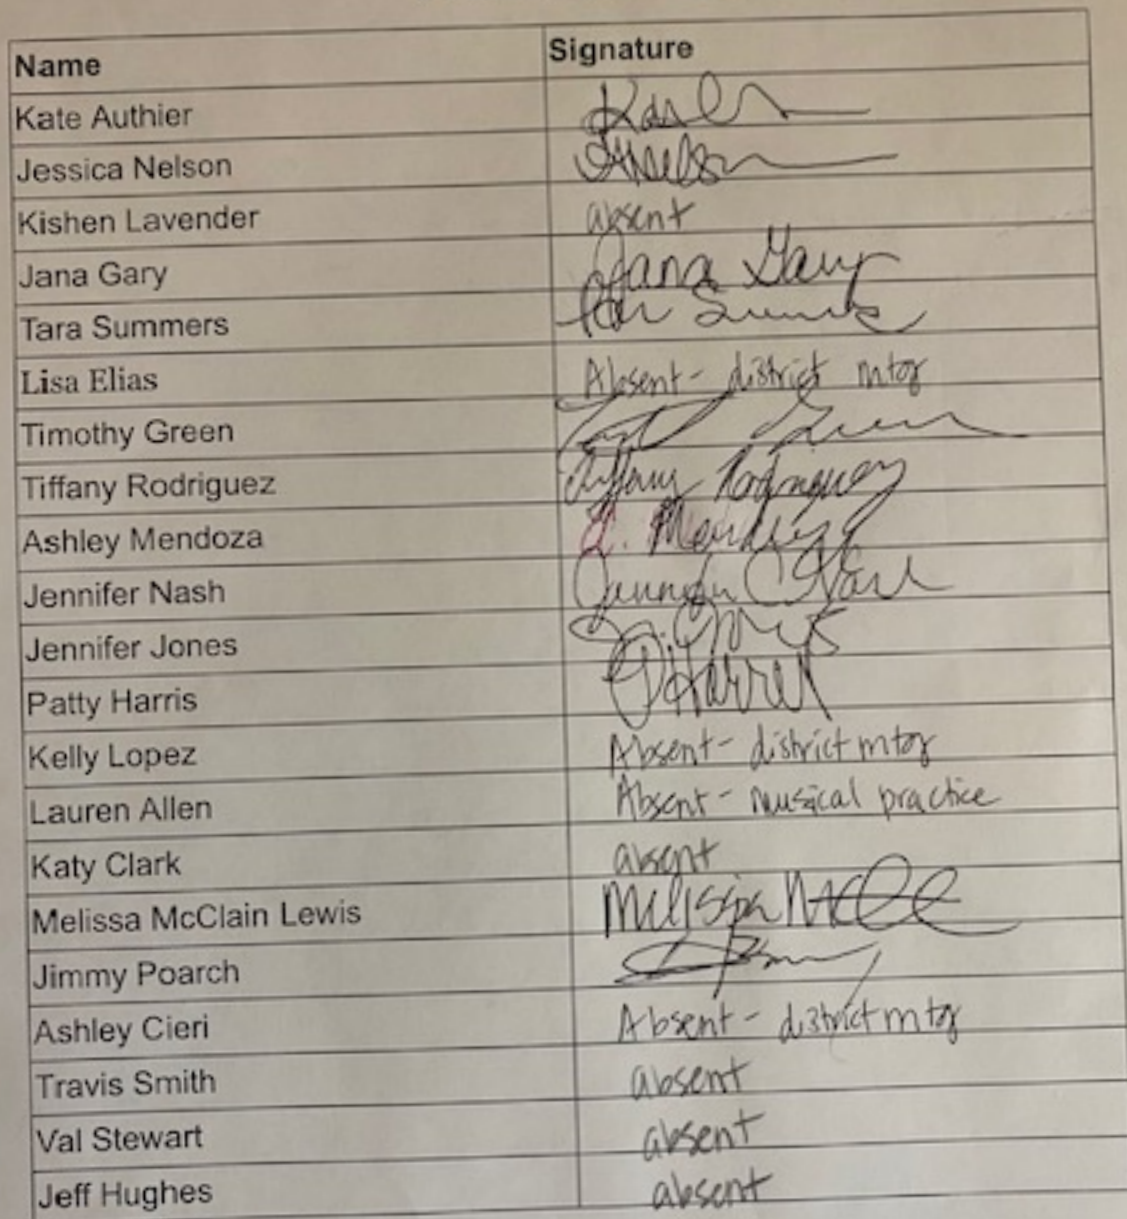 Name Signature
Kate Authier
Jessica Nelson
Kishen Lavender absent
Jana Gary Jana Gary
Tara Summers
Lisa Elias Absent - district mtg
Timothy Green
Tiffany Rodriguez Tiffany Rodriguez
Ashley Mendoza
Jennifer Nash
Jennifer Jones
Patty Harris
Kelly Lopez Absent - district mtg
Lauren Allen Absent - musical practice
Katy Clark absent
Melissa McClain Lewis Melissa
Jimmy Poarch
Ashley Cieri Absent - district mtg
Travis Smith absent
Val Stewart absent
Jeff Hughes absent